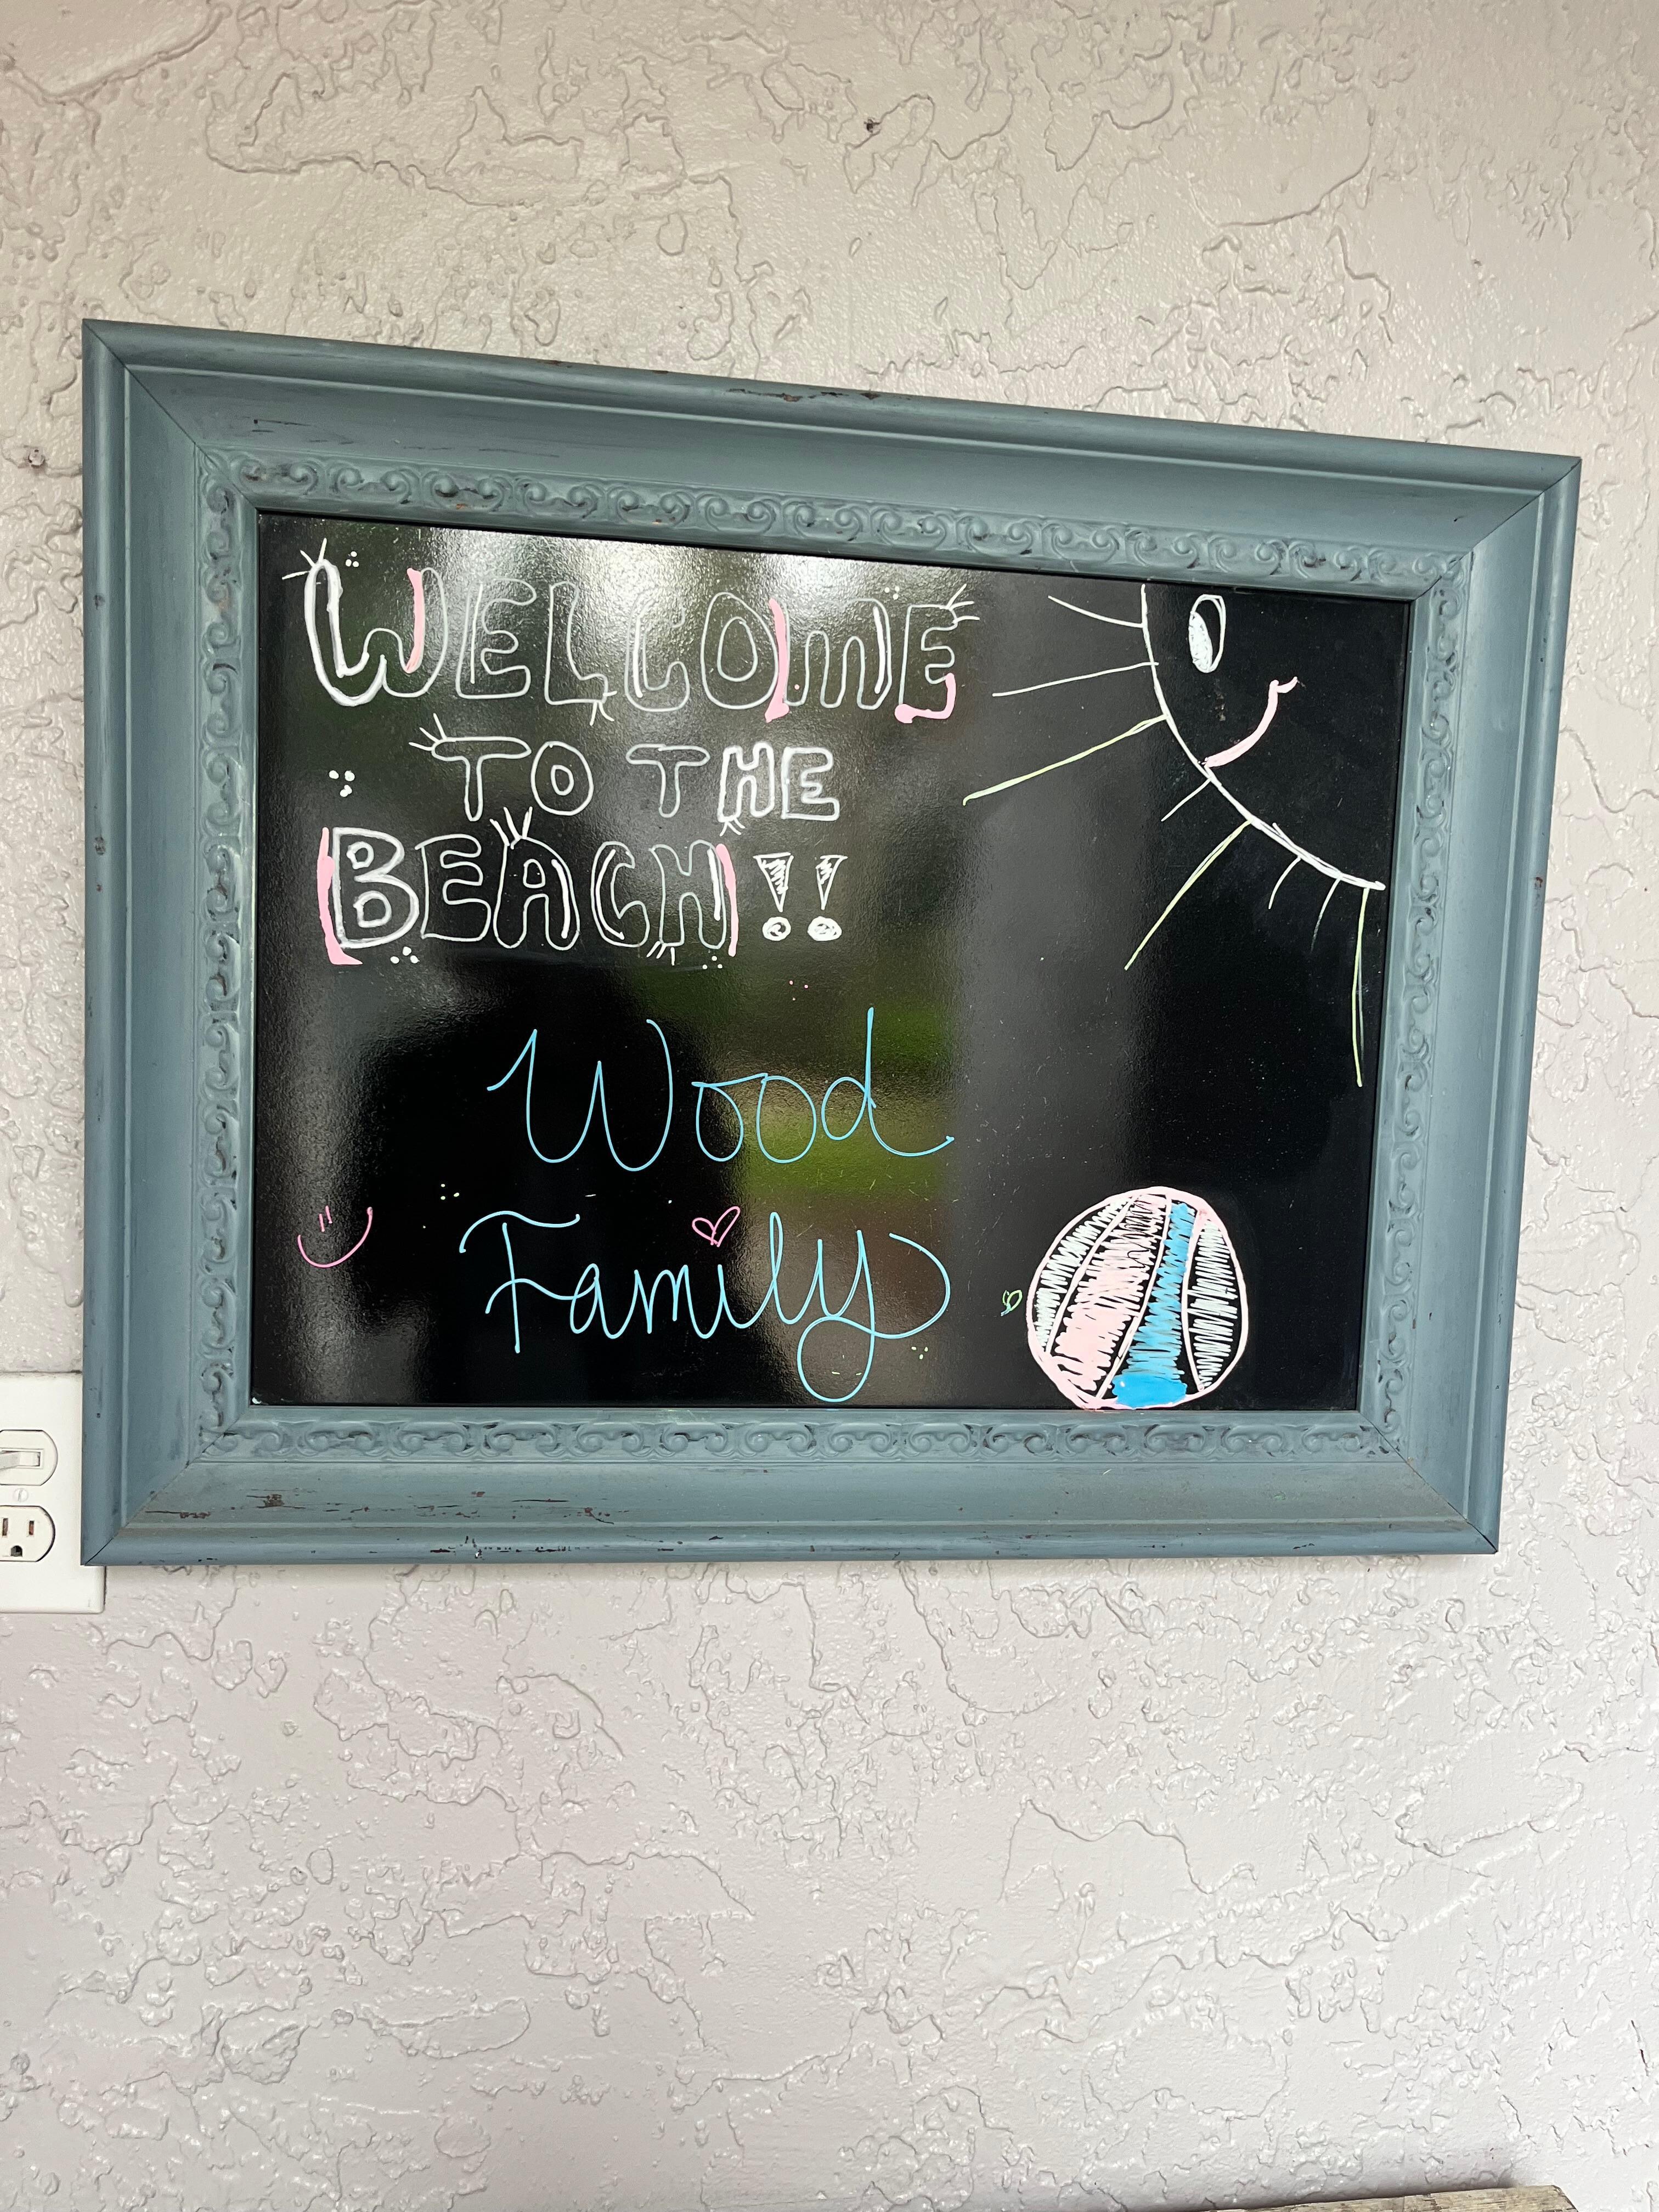 WELCOME
TO THE
BEACH!!
Wood
Family